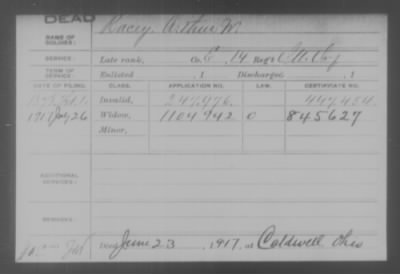 DEAD
NAME OF SOLDIER: Racey, Arthur W.
SERVICE: Late rank, Co. E, 14 Reg't
TERM OF SERVICE: Enlisted , 1 Discharged , 1
DATE OF FILING. CLASS. APPLICATION NO. LAW. CERTIFICATE NO.
Invalid, 247,976. 447,454.
1917 July 26 Widow, 1104942 O 845627
Minor,
ADDITIONAL SERVICES:
REMARKS:
Died June 23, 1917, at Caldwell Ohio